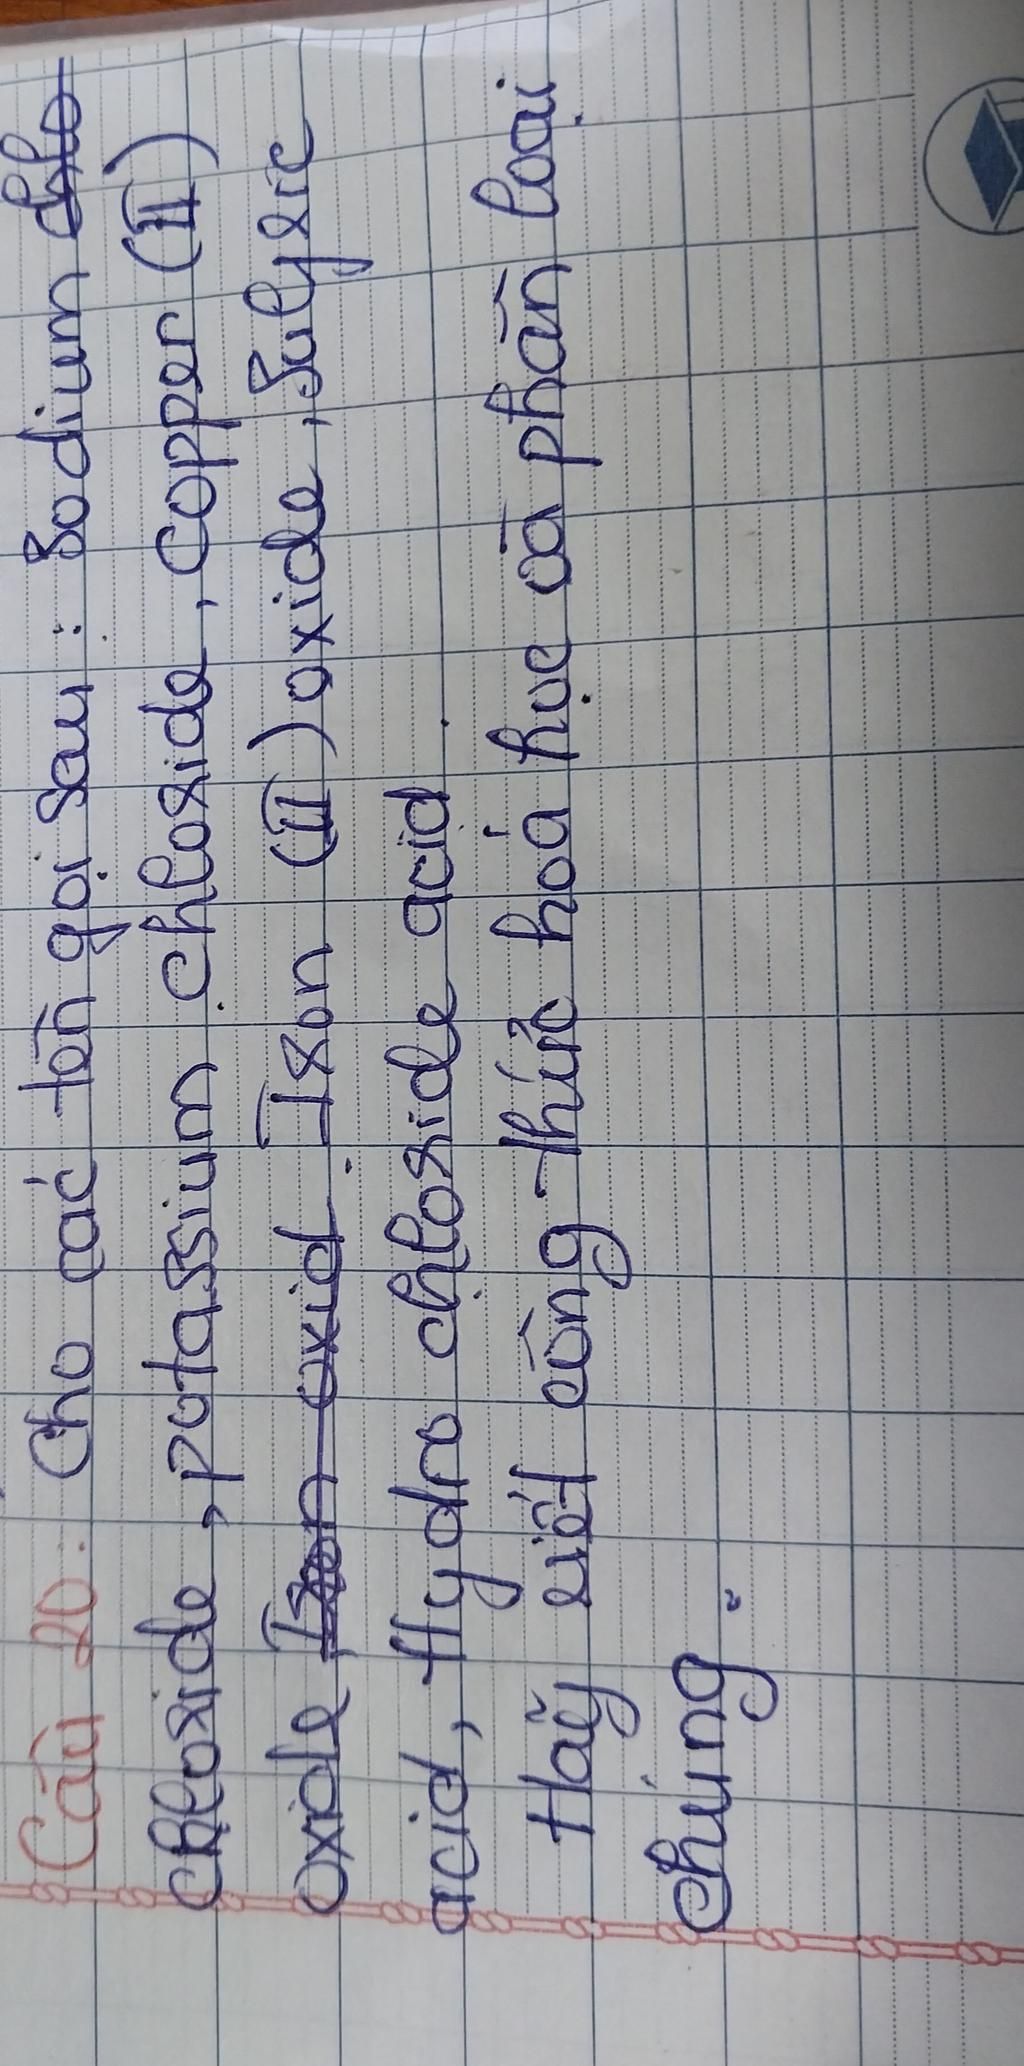 Câu 20: Cho các tên gọi sau: Sodium chlo
chloride, potassium chloride, copper (II)
oxide Iron oxid. Iron (II) oxide, Sulfuric
acid, Hydro chloride acid.
Hãy viết công thức hóa học và phân loại
chúng.